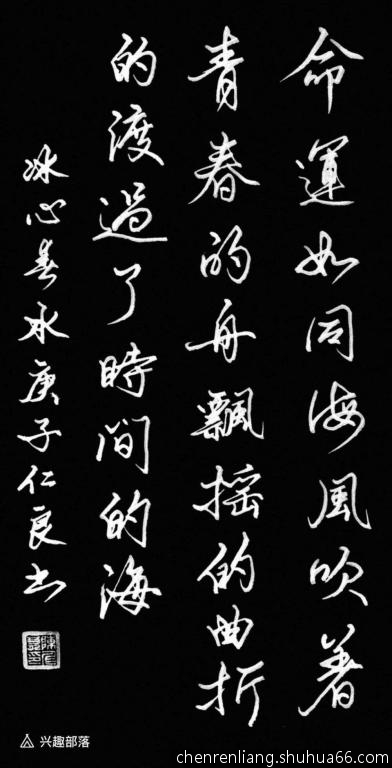 命運如同海風吹著
青春的舟飄摇的曲折
的渡過了時間的海
冰心春水庚子仁良书
陳仁良印
兴趣部落
chenrenliang.shuhua66.com